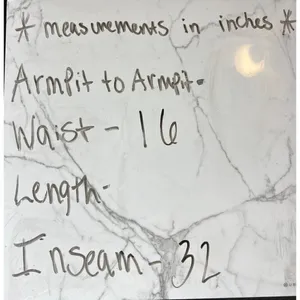 * measurements in inches *
Armpit to Armpit-
Waist - 16
Length-
Inseam - 32